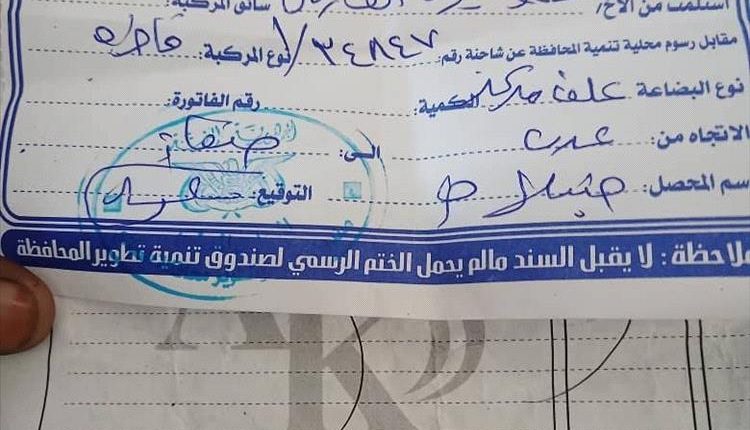 استلمت من الأخ/ سائق المركبة:
مقابل رسوم محلية تنمية المحافظة عن شاحنة رقم: ٣٤٨٤٧/١ نوع المركبة: قاطرة
نوع البضاعة علف مركز الكمية: رقم الفاتورة:
الاتجاه من: عدن الى: صنعاء
سم المحصل: التوقيع:
ملاحظة: لا يقبل السند مالم يحمل الختم الرسمي لصندوق تنمية تطوير المحافظة
AK